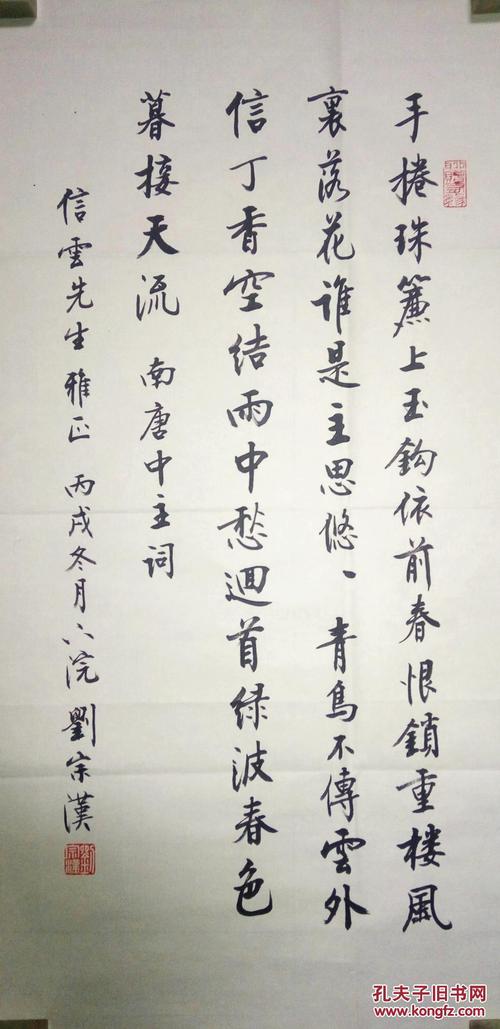 手捲珠簾上玉鈎依前春恨鎖重楼風
裏落花誰是主思悠丶青鳥不傳雲外
信丁香空结雨中愁迴首绿波春色
暮接天流 南唐中主词
信雲先生雅正 丙戌冬月 八浣 劉宗漢
劉宗漢
孔夫子旧书网
www.kongfz.com